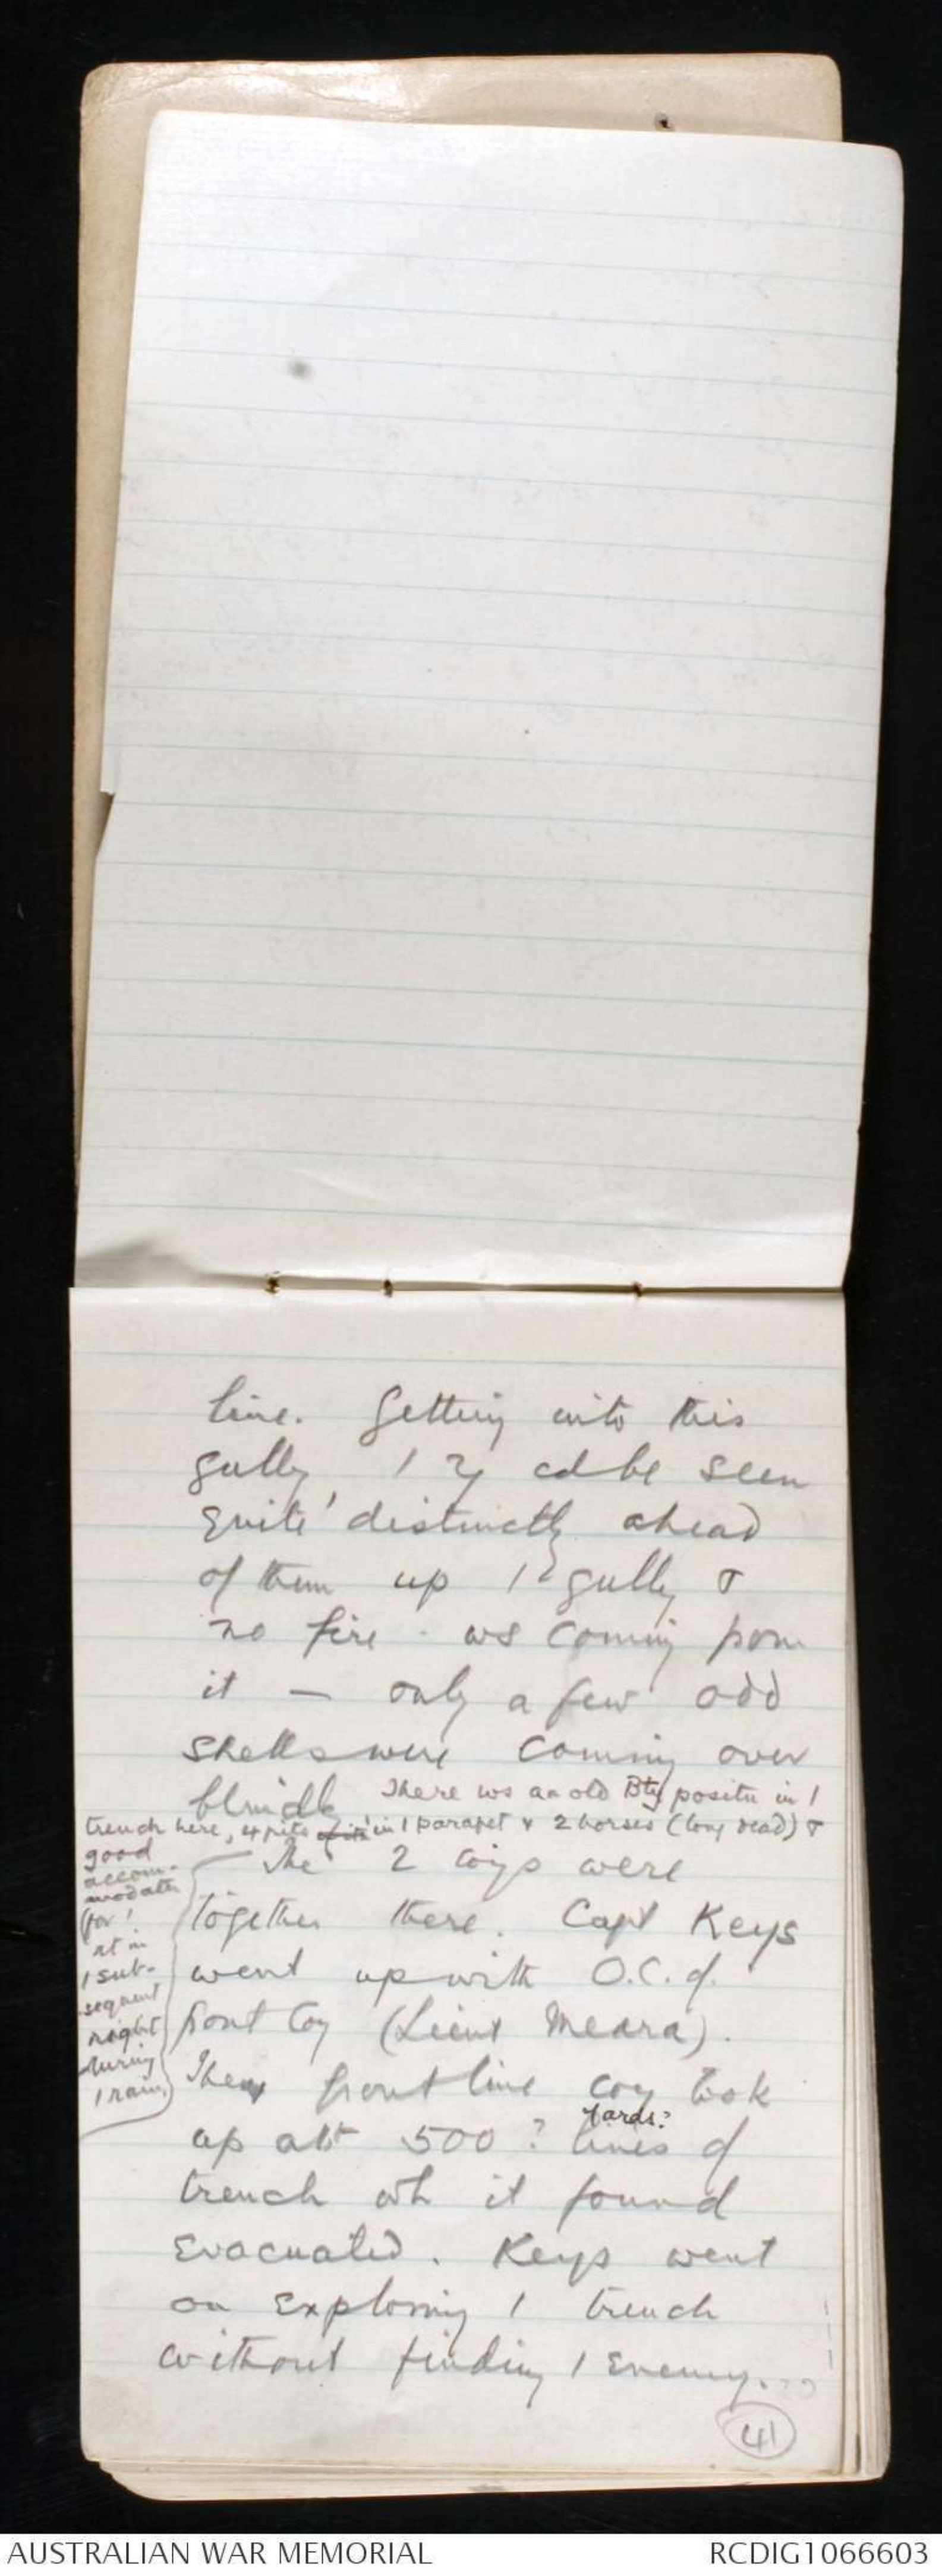 line. Getting into this
gully, / cd be seen
quite distinctly ahead
of them up / gully &
no fire ws coming from
it — only a few odd
shells were coming over
blindly There ws an old Bty positn in /
trench here, 4 pits in / parapet & 2 horses (long dead) &
good
accom-
modatn
for
at in
/ sub-
sequent
night
during
/ rain.
The 2 coys were
together there. Capt Keys
went up with O.C. of
front Coy (Lieut Meara).
The front line coy took
up abt 500 ? lines of
yards?
trench wh it found
evacuated. Keys went
on exploring / trench
without finding / enemy.
41
AUSTRALIAN WAR MEMORIAL
RCDIG1066603